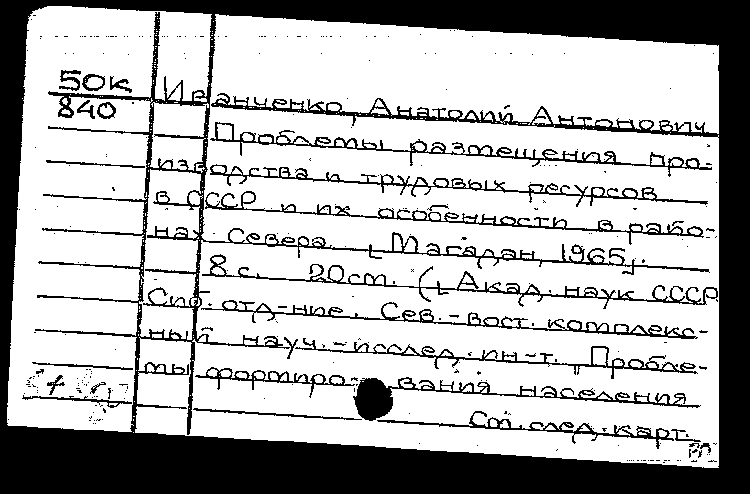 50К
840
Иванченко, Анатолий Антонович
Проблемы размещения про-
изводства и трудовых ресурсов
в СССР и их особенности в райо-
нах Севера. [Магадан, 1965].
8 с. 20 см. ([Акад. наук СССР
Сиб. отд-ние. Сев.-вост. комплекс-
ный науч.-исслед. ин-т. "Пробле-
мы формиро- вания населения
См. след. карт.